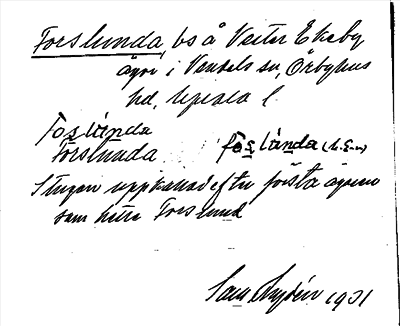 Forslunda, bs å Vester Ekeby
ägor i Vendels sn, Örbyhus
hd, Upsala l.
Foslànda
Forslunda foslànda (
Stugan uppkallad efter första ägaren
som hette Forslund
Sam 1931